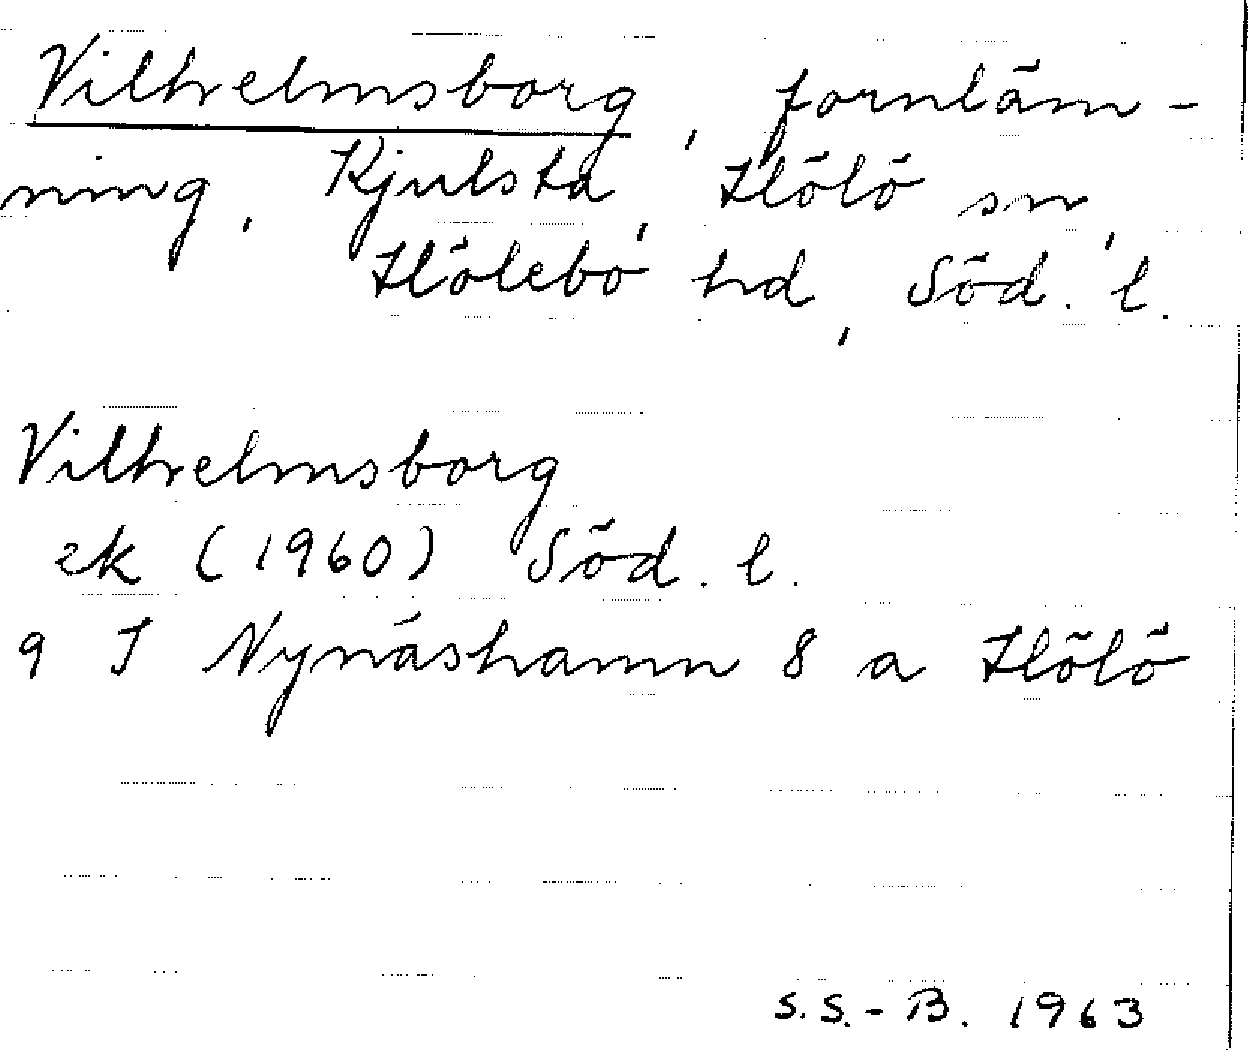 Vilhelmsborg, fornläm-
ning, Kjulsta, Hölö sn,
Hölebo hd, Söd. l.
Vilhelmsborg
ek (1960) Söd. l.
9 I Nynäshamn 8 a Hölö
S.S.-B. 1963